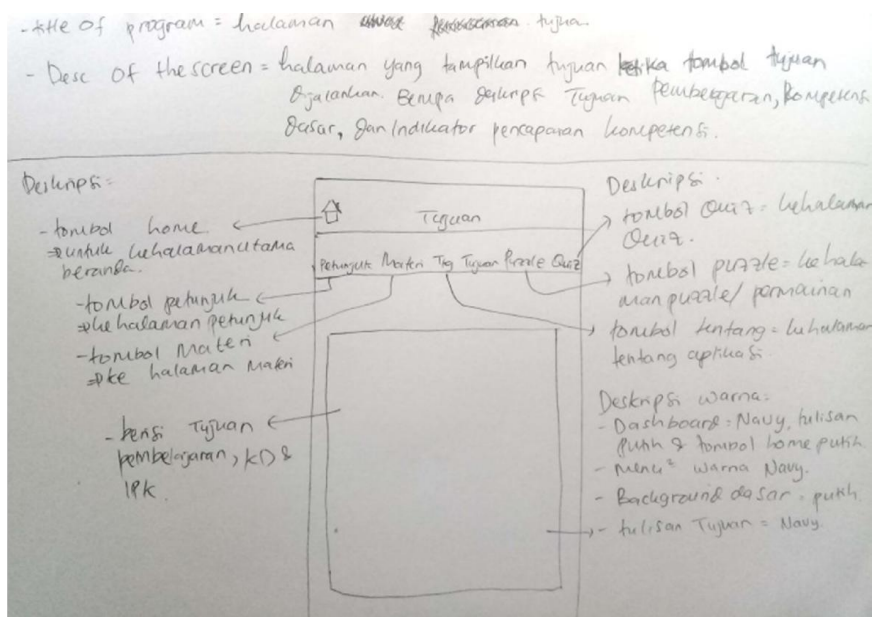 - title of program = halaman tujuan.
- Desc of the screen = halaman yang tampilkan tujuan ketika tombol tujuan
dijalankan. Berupa deskripsi Tujuan Pembelajaran, Kompetensi
dasar, dan Indikator pencapaian kompetensi.
Deskripsi =
- tombol home
⇒ untuk kehalaman utama
beranda.
- tombol petunjuk
⇒ ke halaman petunjuk
- tombol Materi
⇒ ke halaman Materi
- berisi Tujuan
pembelajaran, KD &
IPK.
Tujuan
Petunjuk Materi Ttg Tujuan Puzzle Quiz
Deskripsi.
tombol Quiz = kehalaman
Quiz.
tombol puzzle = ke hala
man puzzle/ permainan
tombol tentang = kehalaman
tentang aplikasi.
Deskripsi warna:
- Dashboard = Navy, tulisan
putih & tombol home putih
- Menu² warna Navy.
- Background dasar = putih
- tulisan Tujuan = Navy.